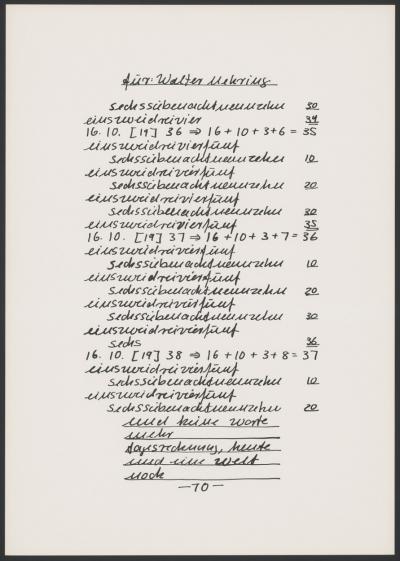 für: Walter Mehring
sechssiebenachtneunzehn 30
einszweidreivier 34
16. 10. [19] 36 ⇒ 16 + 10 + 3 + 6 = 35
einszweidreivierfünf
sechssiebenachtneunzehn 10
einszweidreivierfünf
sechssiebenachtneunzehn 20
einszweidreivierfünf
sechssiebenachtneunzehn 30
einszweidreivierfünf 35
16. 10. [19] 37 ⇒ 16 + 10 + 3 + 7 = 36
einszweidreivierfünf
sechssiebenachtneunzehn 10
einszweidreivierfünf
sechssiebenachtneunzehn 20
einszweidreivierfünf
sechssiebenachtneunzehn 30
einszweidreivierfünf
sechs 36
16. 10. [19] 38 ⇒ 16 + 10 + 3 + 8 = 37
einszweidreivierfünf
sechssiebenachtneunzehn 10
einszweidreivierfünf
sechssiebenachtneunzehn 20
und keine worte
mehr
tagesrechnung, heute
und eine welt
noch
—70—